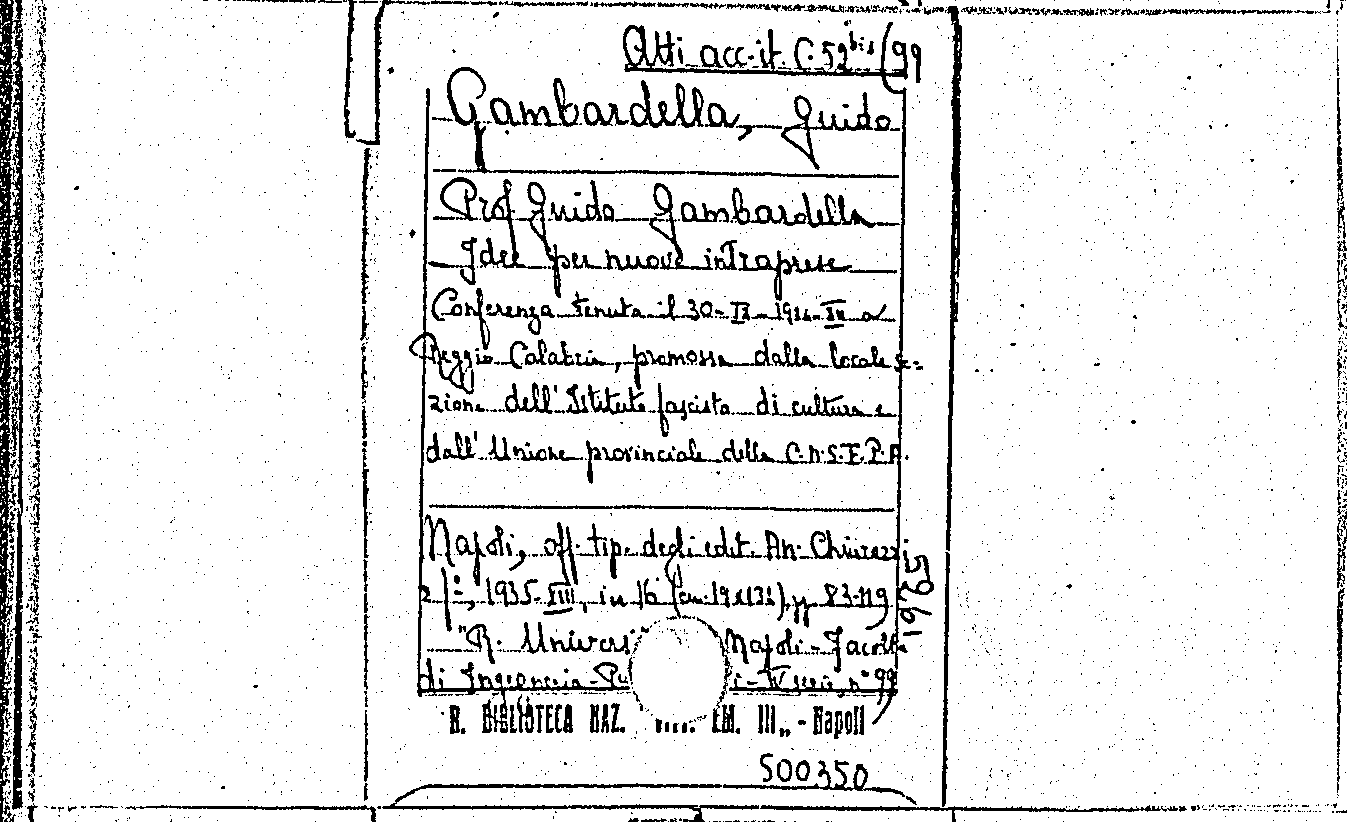 Atti acc. it. C. 52 bis (99
Gambardella, Guido
Prof. Guido Gambardella
Idee per nuove intraprese
Conferenza tenuta il 30-IX-1934-XII a
Reggio Calabria, promossa dalla locale se=
zione dell'Istituto fascista di cultura e
dall'Unione provinciale della C.N.S.F.P.A.
Napoli, off. tip. degli edit. An. Chiurazzi
e f.º, 1935-XIII, in 16 (cm. 19x13½), pp 83-119
"R. Universi Napoli - Facoltà
di Ingegneria - Pu i - IV serie, n° 99)
R. BIBLIOTECA NAZ. EM. III„ - Napoli
500350
59761